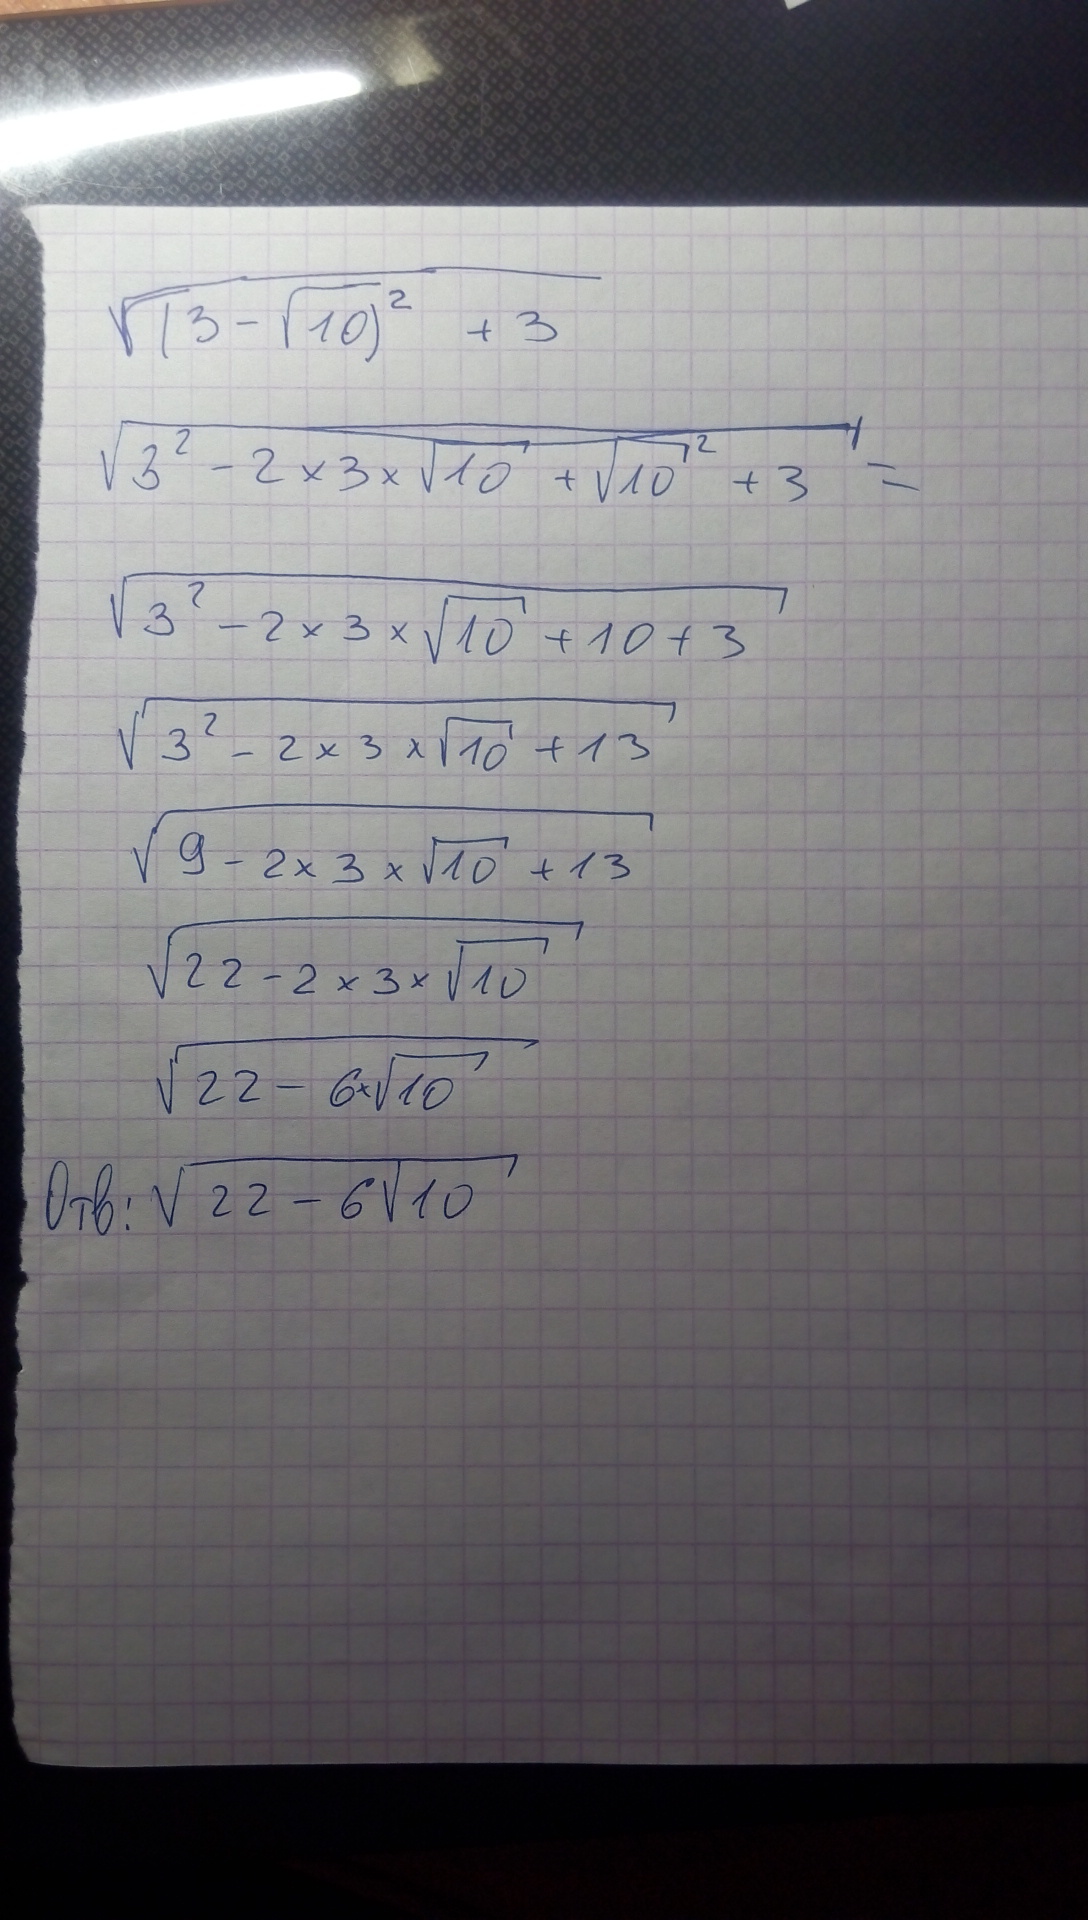 √(3-√10)² + 3
√3² - 2×3×√10 + √10² + 3 =
√3² - 2×3×√10 + 10 + 3
√3² - 2×3×√10 + 13
√9 - 2×3×√10 + 13
√22 - 2×3×√10
√22 - 6×√10
Отв: √22 - 6√10